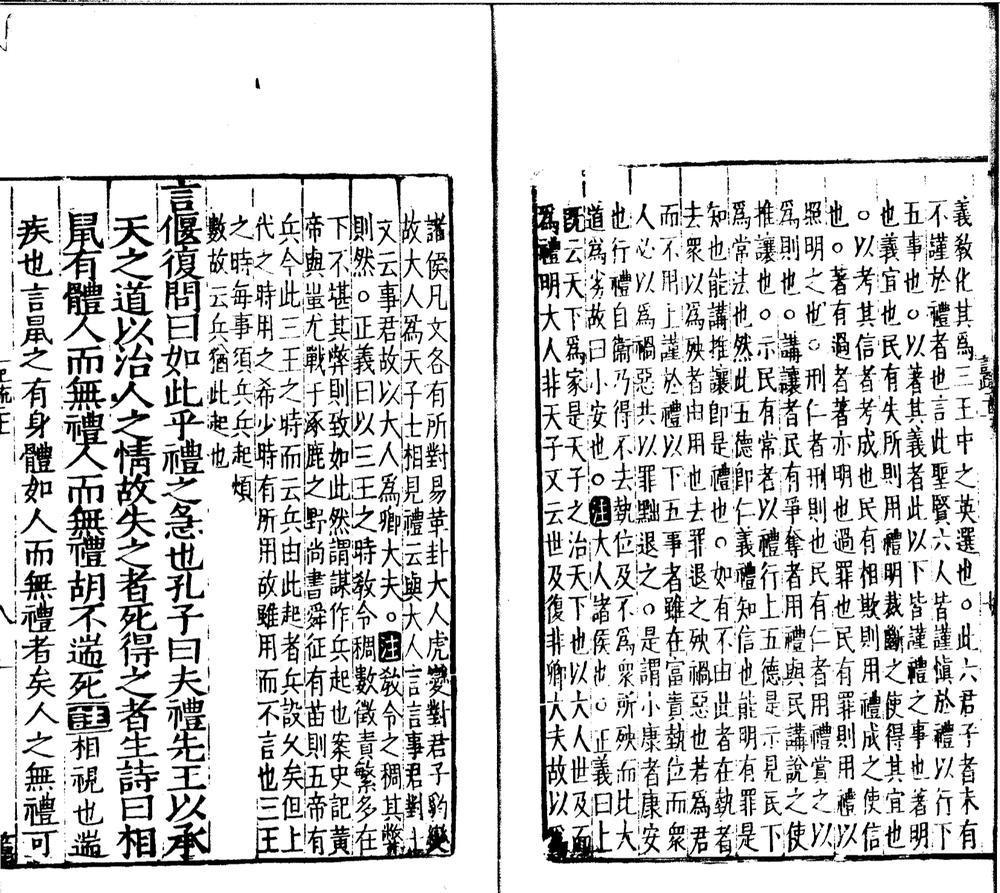 義敎化其爲三王中之英選也○此六君子者未有
不謹於禮者也言此聖賢六人皆謹愼於禮以行下
五事也○以著其義者此以下皆謹禮之事也著明
也義宜也民有失所則用禮明裁斷之使得其宜也
○以考其信者考成也民有相欺則用禮成之使信
也○著有過者著亦明也過罪也民有罪則用禮以
照明之也○刑仁者刑則也民有仁者用禮賞之以
爲則也○講讓者民有爭奪者用禮與民講說之使
推讓也○示民有常者以禮行上五德是示見民下
爲常法也然此五德卽仁義禮知信也能明有罪是
知也能講推讓卽是禮也○如有不由此者在埶者
去衆以爲殃者由用也去罪退之殃禍惡也若爲君
而不用上謹於禮以下五事者雖在富貴埶位而衆
人必以爲禍惡共以罪黜退之○是謂小康者康安
也行禮自衞乃得不去埶位及不爲衆所殃而此大
道爲劣故曰小安也○注大人諸侯也○正義曰上
旣云天下爲家是天子之治天下也以大人世及而
爲禮明大人非天子又云世及復非卿大夫故以爲
諸侯凡文各有所對易革卦大人虎變對君子豹變
故大人爲天子士相見禮云與大人言言事君對士
文云事君故以大人爲卿大夫○注敎令之稠其弊
則然○正義曰以三王之時敎令稠數徵責繁多在
下不堪其弊則致如此然謂謀作兵起也案史記黃
帝與蚩尤戰于涿鹿之野尚書舜征有苗則五帝有
兵今此三王之時而云兵由此起者兵設久矣但上
代之時用之希少時有所用故雖用而不言也三王
之時每事須兵兵起煩
數故云兵猶此起也
言偃復問曰如此乎禮之急也孔子曰夫禮先王以承
天之道以治人之情故失之者死得之者生詩曰相
鼠有體人而無禮人而無禮胡不遄死註相視也遄
疾也言鼠之有身體如人而無禮者矣人之無禮可